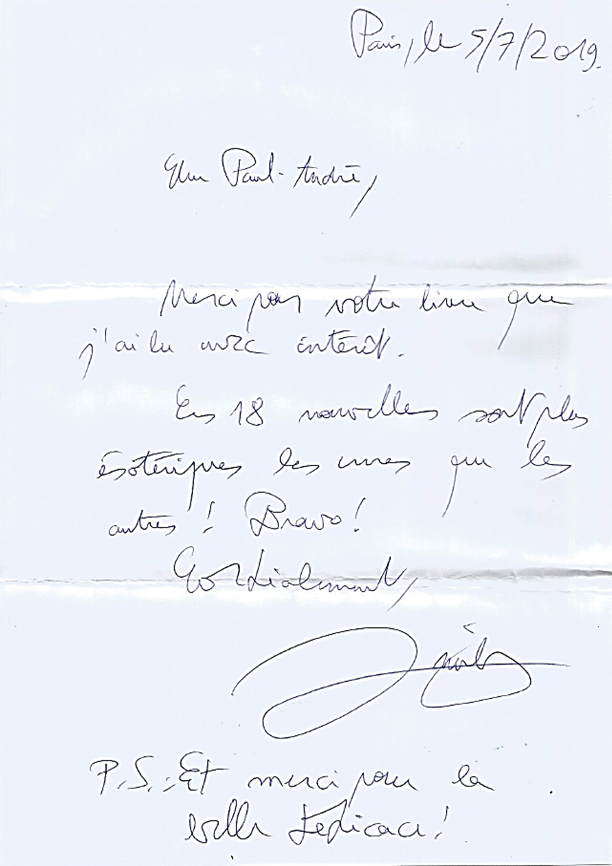 Paris, le 5/7/2019.
Cher Paul-André,
Merci pour votre livre que
j'ai lu avec intérêt.
Ces 18 nouvelles sont plus
ésotériques les unes que les
autres ! Bravo !
Cordialement,
P.S.: Et merci pour la
belle dédicace !